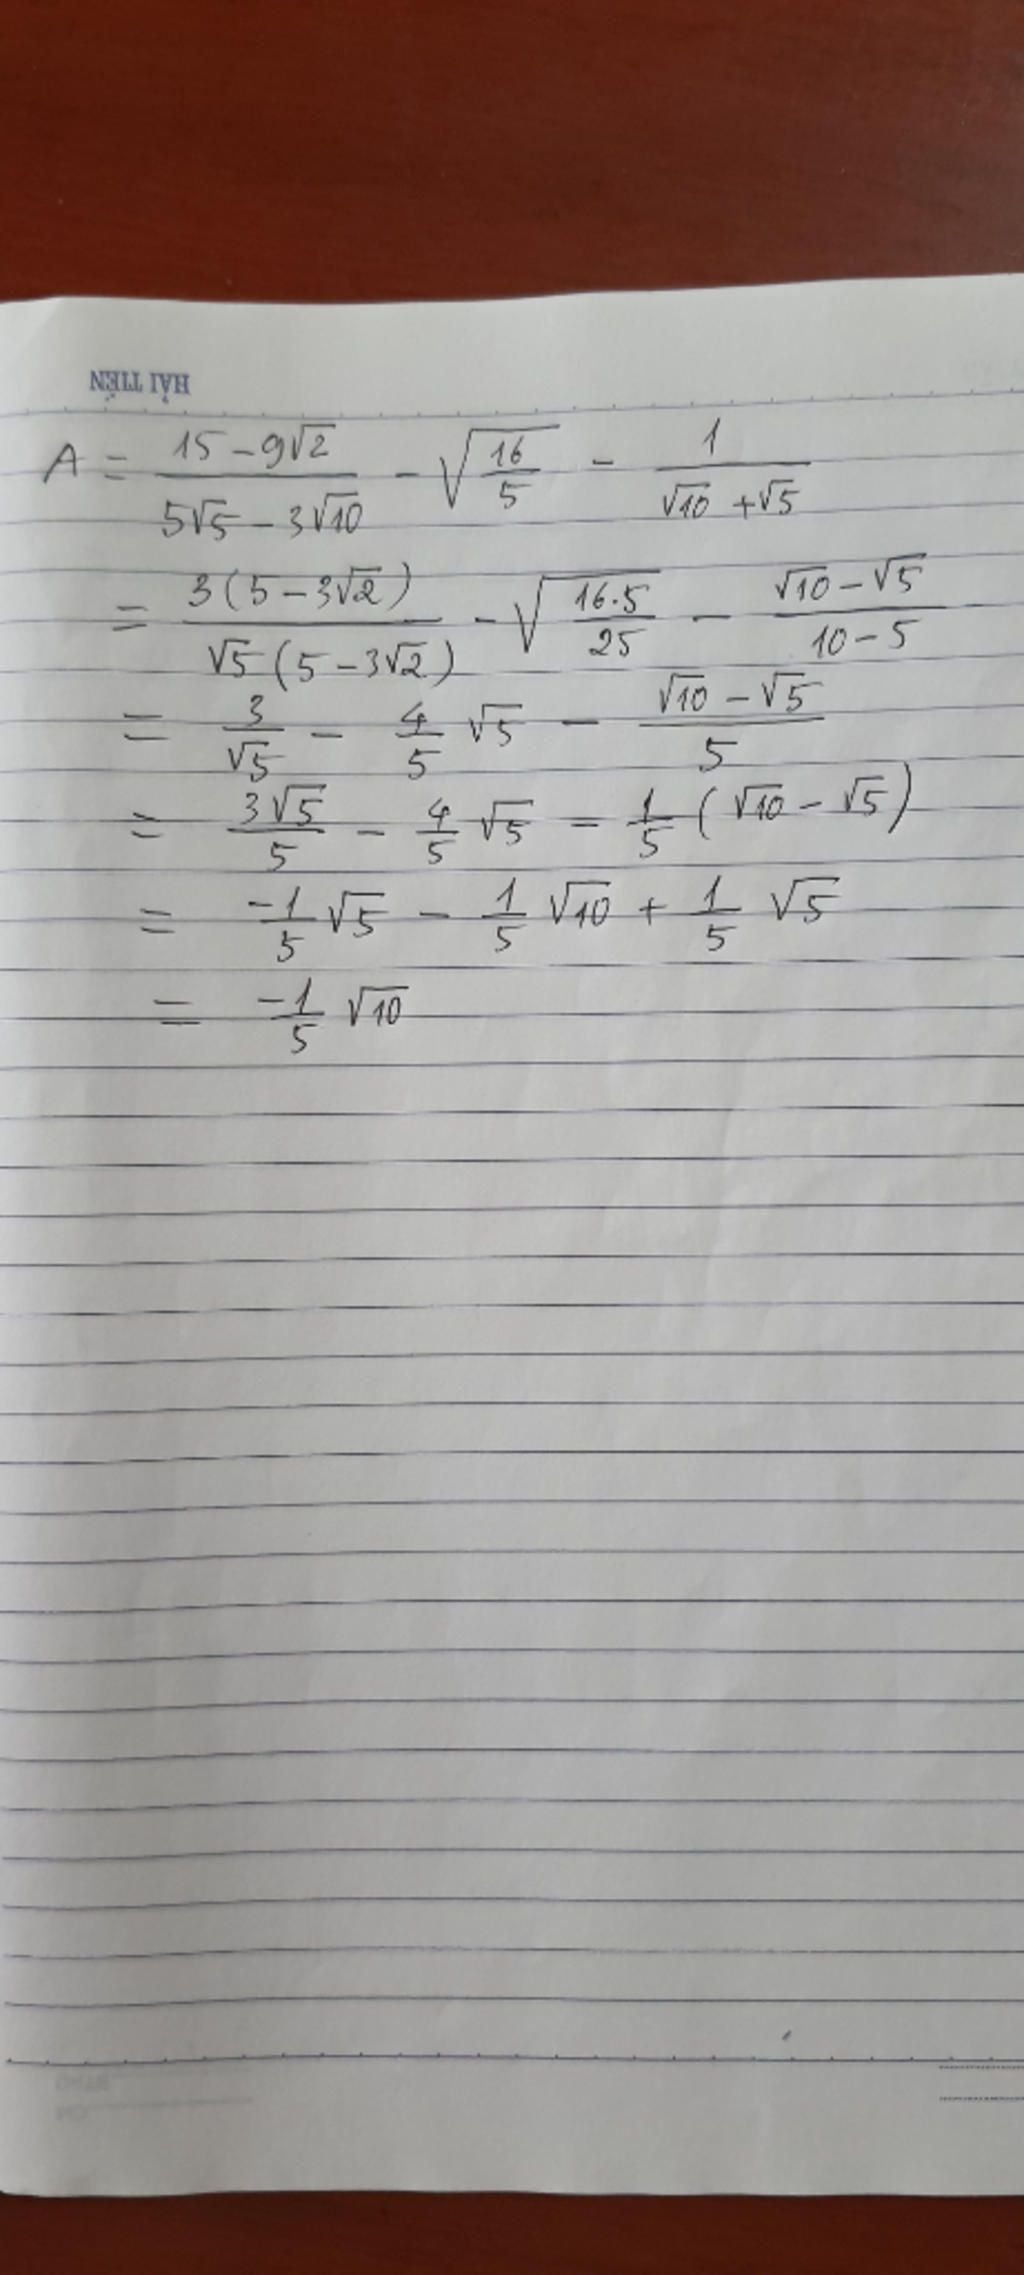 HẢI TIẾN
A = \frac{15-9\sqrt{2}}{5\sqrt{5}-3\sqrt{10}} - \sqrt{\frac{16}{5}} - \frac{1}{\sqrt{10}+\sqrt{5}}
= \frac{3(5-3\sqrt{2})}{\sqrt{5}(5-3\sqrt{2})} - \sqrt{\frac{16.5}{25}} - \frac{\sqrt{10}-\sqrt{5}}{10-5}
= \frac{3}{\sqrt{5}} - \frac{4}{5}\sqrt{5} - \frac{\sqrt{10}-\sqrt{5}}{5}
= \frac{3\sqrt{5}}{5} - \frac{4}{5}\sqrt{5} - \frac{1}{5}(\sqrt{10}-\sqrt{5})
= \frac{-1}{5}\sqrt{5} - \frac{1}{5}\sqrt{10} + \frac{1}{5}\sqrt{5}
= \frac{-1}{5}\sqrt{10}